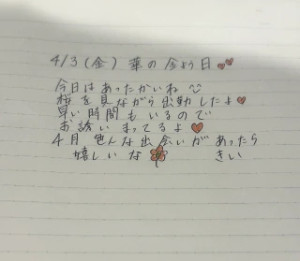 4/3(金) 華の金よう日
今日はあったかいね
桜を見ながら出勤したよ
早い時間もいるので
お誘いまってるよ
4月 色んな出会いがあったら
嬉しいな きい